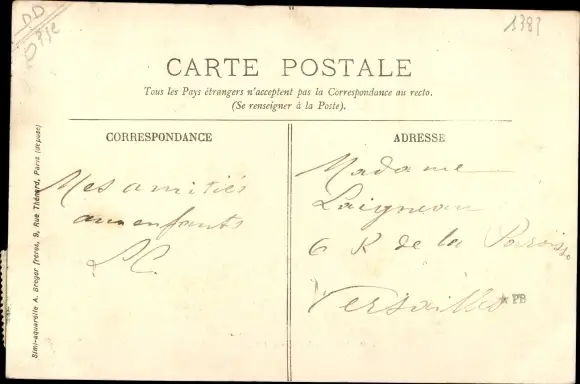 DD
1383
CARTE POSTALE
Tous les Pays étrangers n'acceptent pas la Correspondance au recto.
(Se renseigner à la Poste).
CORRESPONDANCE
Mes amitiés
aux enfants
ADRESSE
Madame
Laigneau
6 R de la Paroisse
Versailles
PB
Simi-aquarelle A. Breger frères, 9, Rue Thénard, Paris (déposé)